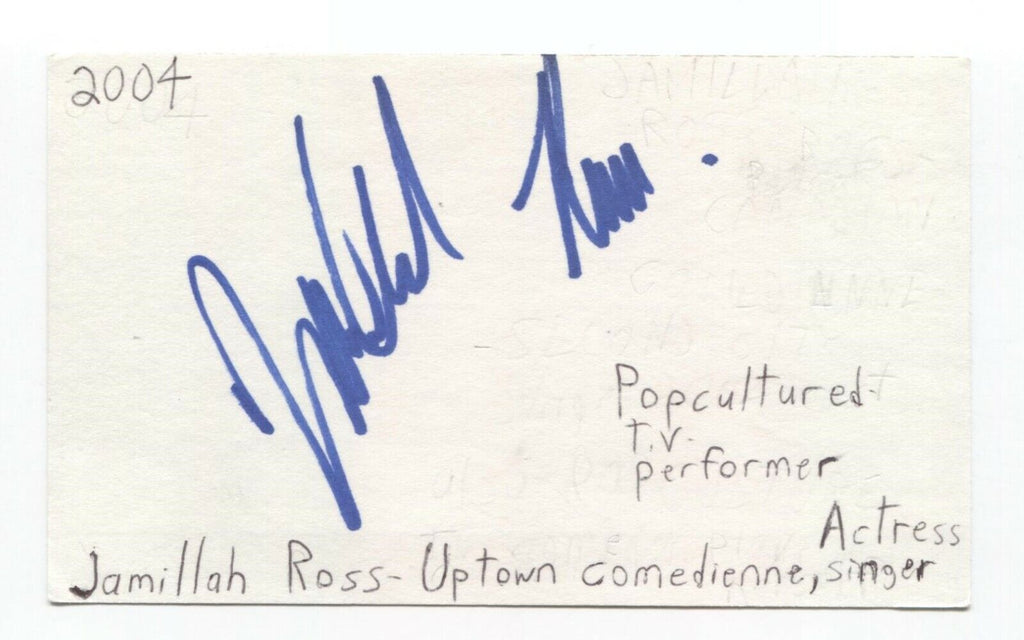 2004
Popcultured
T.V.
performer
Actress
Jamillah Ross- Uptown comedienne, singer